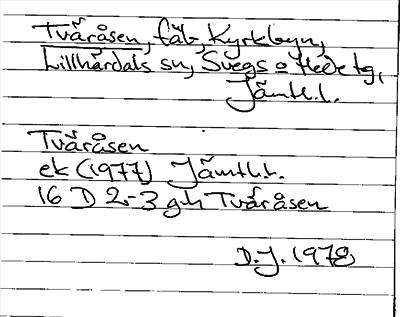 Tväråsen, fäb, Kyrkbyn,
Lillhärdals sn, Svegs o Hede tg,
Jämtl.l.
Tväråsen
ek (1977) Jämtl.l.
16 D 2-3 g h Tväråsen
D.J. 1978